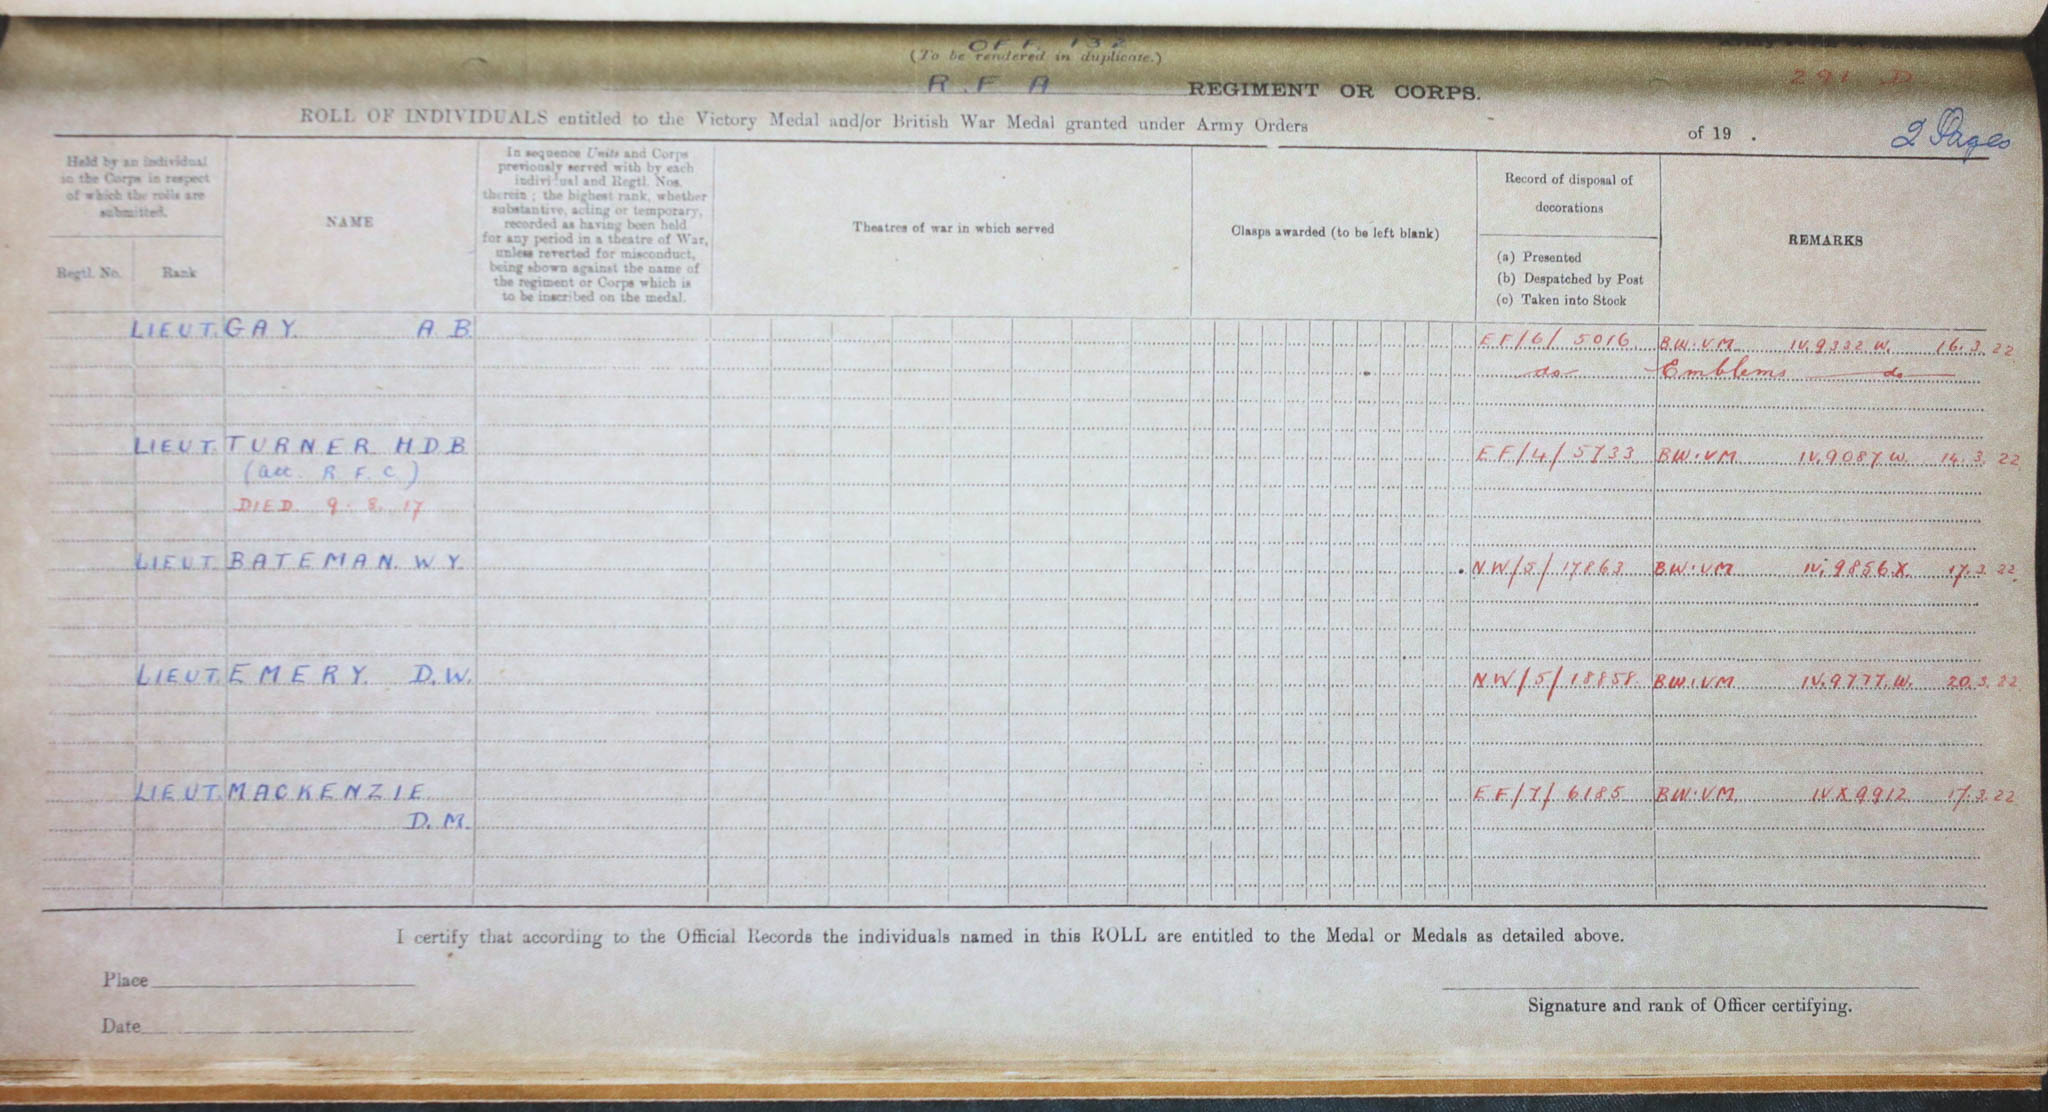 OFF. 132
(To be rendered in duplicate.)
291 D
R F A REGIMENT OR CORPS.
ROLL OF INDIVIDUALS entitled to the Victory Medal and/or British War Medal granted under Army Orders of 19 .
2 Pages
Held by an individual
in the Corps in respect
of which the rolls are
submitted.
Regtl. No.
Rank
NAME
In sequence Units and Corps
previously served with by each
individual and Regtl. Nos.
therein; the highest rank, whether
substantive, acting or temporary,
recorded as having been held
for any period in a theatre of War,
unless reverted for misconduct,
being shown against the name of
the regiment or Corps which is
to be inscribed on the medal.
Theatres of war in which served
Clasps awarded (to be left blank)
Record of disposal of
decorations
(a) Presented
(b) Despatched by Post
(c) Taken into Stock
REMARKS
LIEUT. GAY. A.B. EF/6/5016. BW.VM. IV.9332 W. 16.3.22
do Emblems do
LIEUT. TURNER H.D.B. EF/4/5733 BW.VM IV.9087 W. 14.3.22
(att. R.F.C.)
DIED 9.8.17
LIEUT. BATEMAN. W.Y. NW/5/17863 BW.VM IV.9856 X. 17.3.22
LIEUT. EMERY. D.W. NW/5/18858. BW.VM IV.9777.W. 20.3.22
LIEUT. MACKENZIE EF/7/6185 BW.VM. IVX9912 17.3.22
D.M.
I certify that according to the Official Records the individuals named in this ROLL are entitled to the Medal or Medals as detailed above.
Place
Date
Signature and rank of Officer certifying.